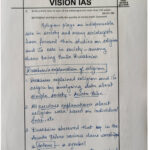 VISION IAS
Religion plays an indispensable
role in society and many sociologists
have focused their studies on religion
and its role in society - among
them being Emile Durkheim
Durkheim's explanation of religion
Durkheim explained religion and its
role in society by
simple society - Arunta Tribe.
All previous explanations about
religion were based on individual
etc.
Durkheim observed that in the
Arunta Tribe
totem - a symbol